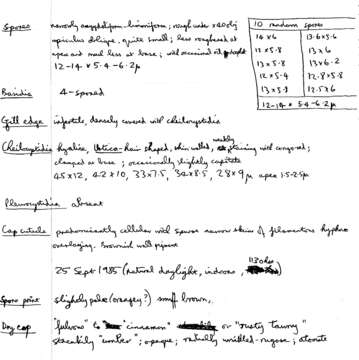 Spores narrowly amygdaliform-limoniform; rough under x40 obj
apiculus oblique, quite small; less roughened at
apex and most less at base; with occasional oil droplet
12-14 x 5.4-6.2µ
10 random spores
14 x 6
12 x 5.8
13 x 5.8
12 x 5.4
13 x 5.8
13.6 x 5.6
13 x 6
13 x 6.2
12.8 x 5.8
12.5 x 6
12-14 x 5.4-6.2µ
Basidia 4-spored
Gill edge infertile, densely covered with cheilocystidia
Cheilocystidia hyaline, Urtica-hair shaped, thin walled, weakly staining with congo red;
clamped at base; occasionally slightly capitate
45x12, 42x10, 33x7.5, 34x8.5, 28x9µ apex 1.5-2.5µ
Pleurocystidia absent
Cap cuticle predominantly cellular with sparse narrow skin of filamentous hyphae
overlaying. Brownish wall pigment
25 Sept 1985 (Natural daylight, indoors, 1130 hrs)
Spore print slightly pale (orangey?) snuff brown.
Dry cap "fulvous" to "cinnamon" or "rusty tawny"
"umber"; opaque; radially wrinkled-rugose; atomate